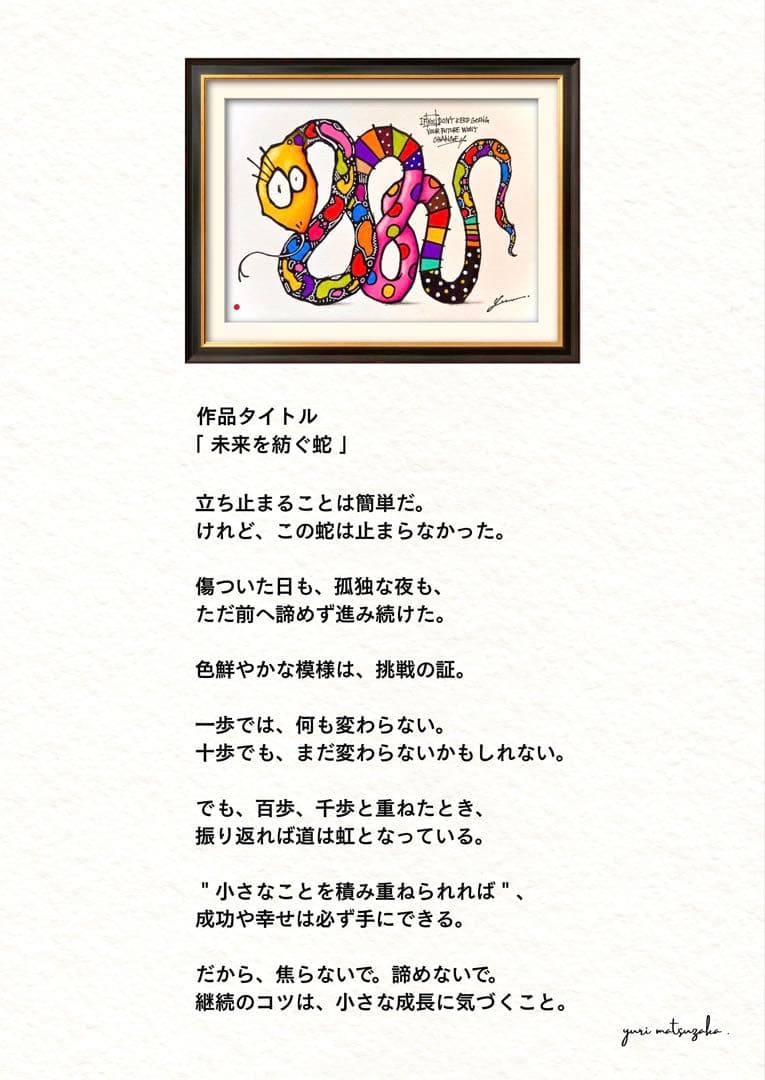 If you DON'T KEEP GOING
YOUR FUTURE WON'T
CHANGE
作品タイトル
「 未来を紡ぐ蛇 」
立ち止まることは簡単だ。
けれど、この蛇は止まらなかった。
傷ついた日も、孤独な夜も、
ただ前へ諦めず進み続けた。
色鮮やかな模様は、挑戦の証。
一歩では、何も変わらない。
十歩でも、まだ変わらないかもしれない。
でも、百歩、千歩と重ねたとき、
振り返れば道は虹となっている。
"小さなことを積み重ねられれば"、
成功や幸せは必ず手にできる。
だから、焦らないで。諦めないで。
継続のコツは、小さな成長に気づくこと。
yuri matsuzaka .